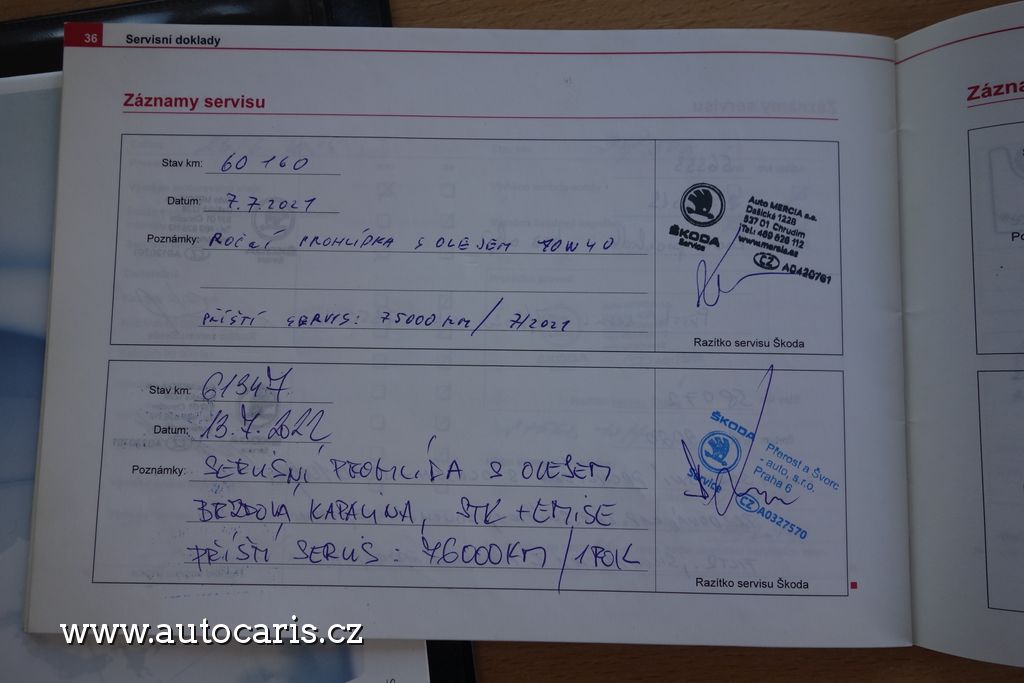 36 Servisní doklady
Záznamy servisu
Stav km: 60 160
Datum: 7.7.2021
Poznámky: ROČNÍ PROHLÍDKA S OLEJEM 10W40
PŘÍŠTÍ SERVIS: 75000 KM / 7/2021
ŠKODA
Service
Auto MERCIA a.s.
Dašická 1228
537 01 Chrudim
Tel.: 469 626 112
www.mercia.cz
CZ A0420761
Razítko servisu Škoda
Stav km: 61347
Datum: 13.7.2022
Poznámky: SERVISNÍ PROHLÍDKA S OLEJEM
BRZDOVÁ KAPALINA, STK + EMISE
PŘÍŠTÍ SERVIS: 76000KM / 1 ROK
ŠKODA
Service
Přerost a Švorc
- auto, s.r.o.
Praha 6
CZ A0327570
Razítko servisu Škoda
www.autocaris.cz